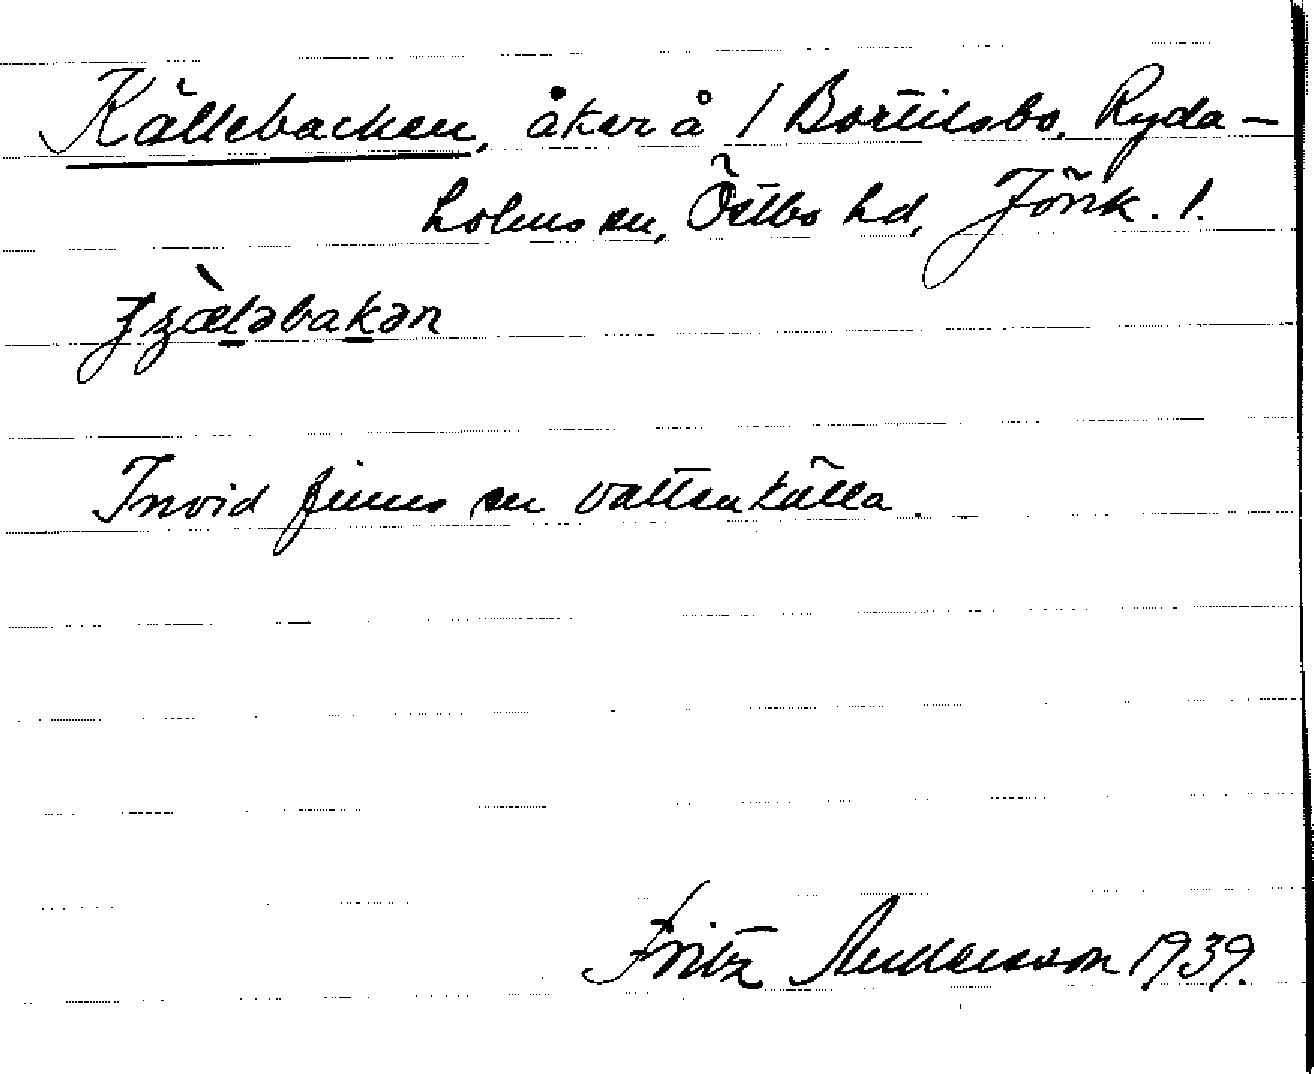 Källebacken, åker å 1 Bortilsbo, Ryda-
holms sn, Östbo hd, Jönk. l.
Invid finns en vattenkälla.
Fritz Andersson 1939.